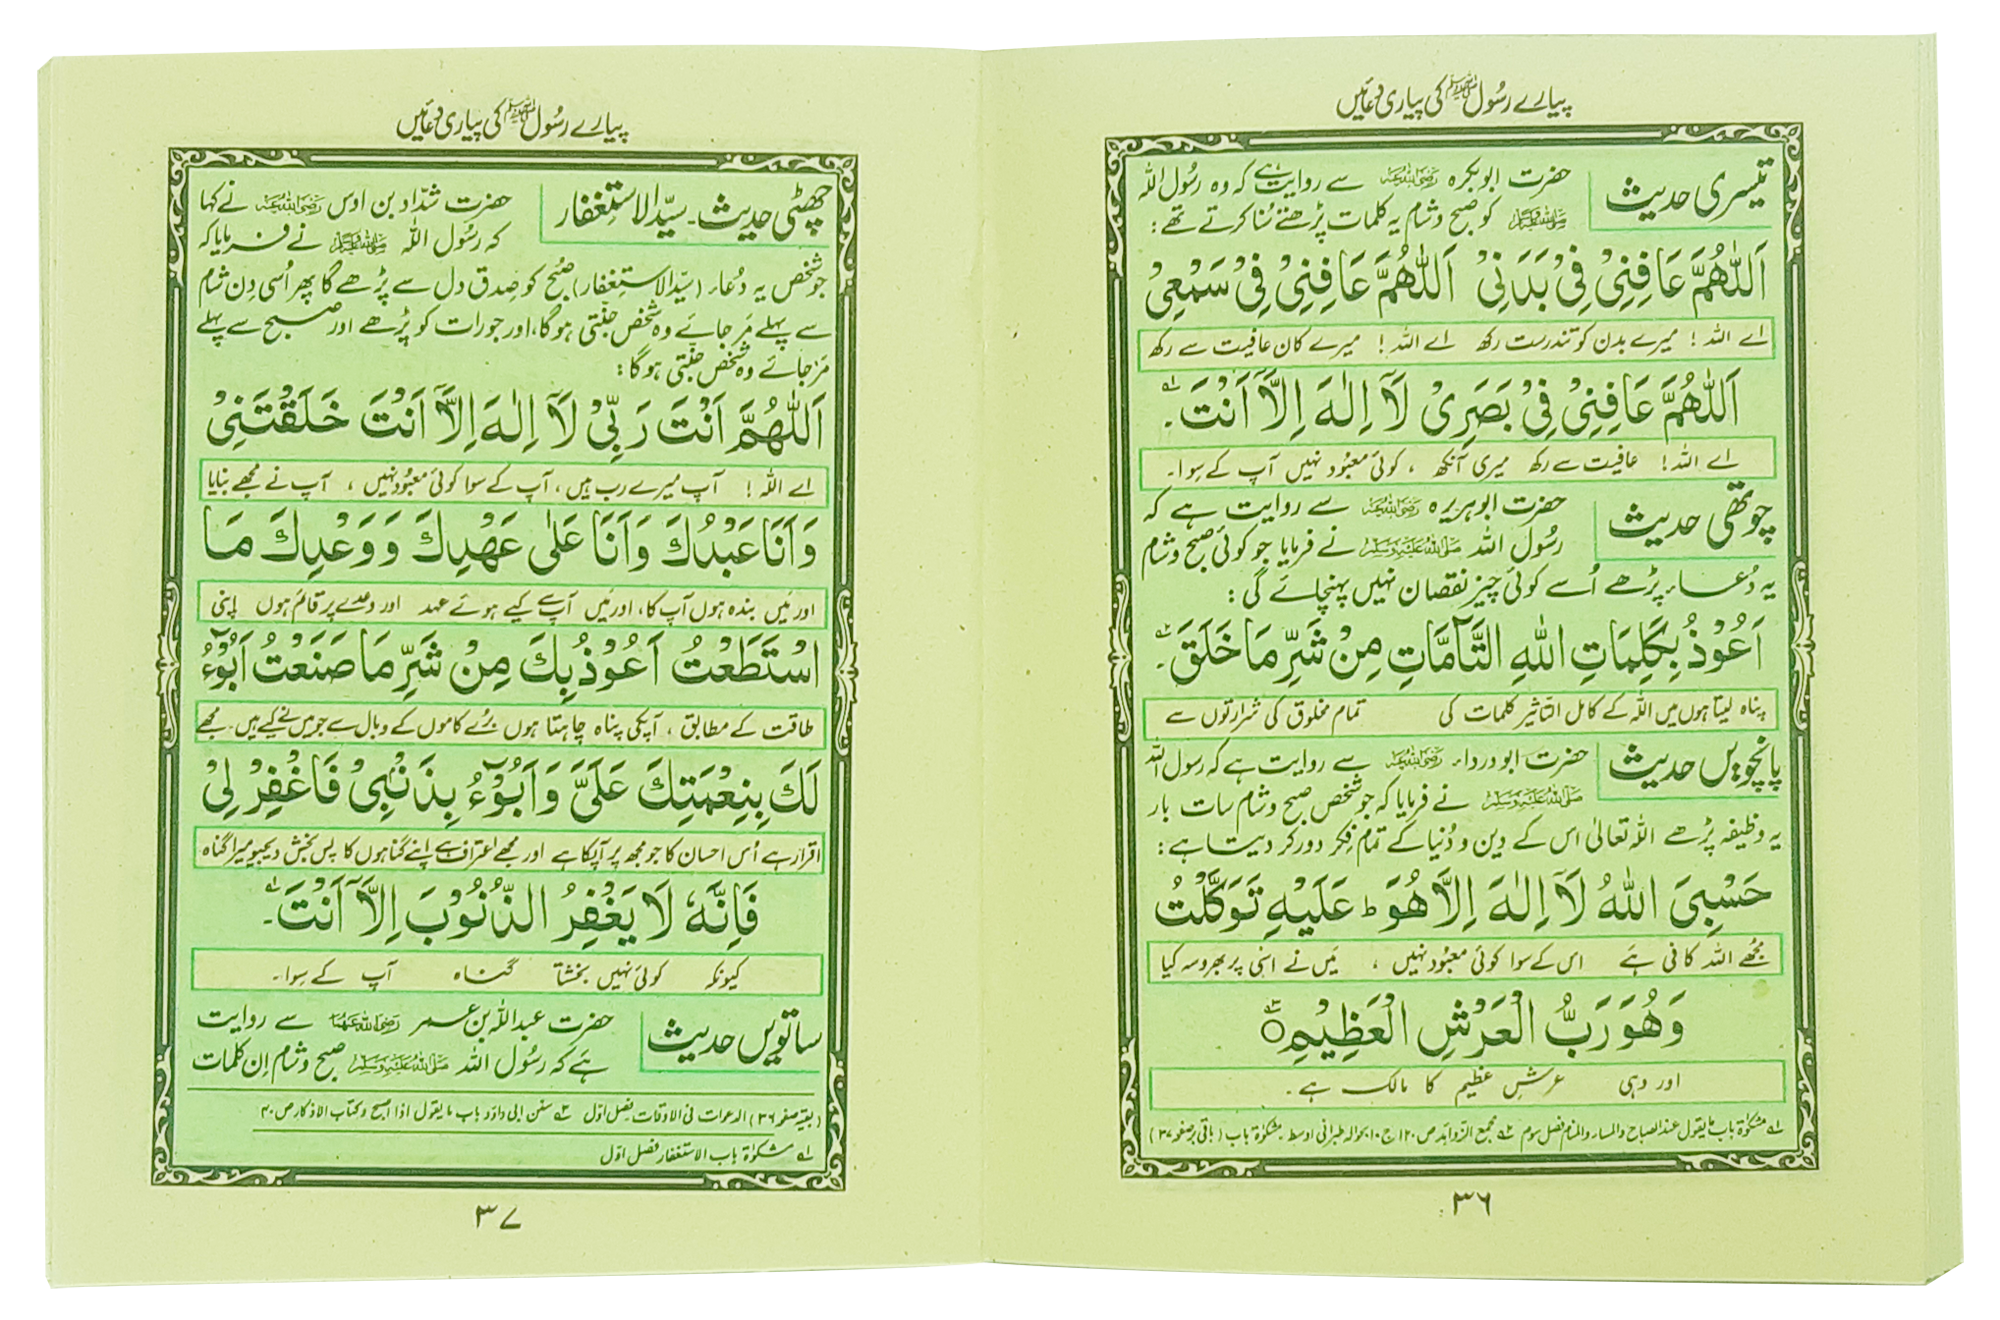 پیارے رسُول ﷺ کی پیاری دعائیں
تیسری حدیث حضرت ابوبکرہ رضی اللہ عنہ سے روایت ہے کہ وہ رسُول اللہ
صلی اللہ علیہ وسلم کو صبح و شام یہ کلمات پڑھتے سُنا کرتے تھے:
اَللّٰهُمَّ عَافِنِيْ فِيْ بَدَنِيْ اَللّٰهُمَّ عَافِنِيْ فِيْ سَمْعِيْ
اے اللہ! میرے بدن کو تندرست رکھ اے اللہ! میرے کان عافیت سے رکھ
اَللّٰهُمَّ عَافِنِيْ فِيْ بَصَرِيْ لَآ اِلٰهَ اِلَّآ اَنْتَ۔ ۱ـہ
اے اللہ! عافیت سے رکھ میری آنکھ ، کوئی معبُود نہیں آپ کے سِوا۔
چوتھی حدیث حضرت ابوہریرہ رضی اللہ عنہ سے روایت ہے کہ
رسُول اللہ صلی اللہ علیہ وسلم نے فرمایا جو کوئی صبح و شام
یہ دُعا پڑھے اُسے کوئی چیز نقصان نہیں پہنچائے گی:
اَعُوْذُ بِكَلِمَاتِ اللهِ التَّآمَّاتِ مِنْ شَرِّ مَا خَلَقَ۔ ۲ـہ
پناہ لیتا ہوں میں اللہ کے کامل التاثیر کلمات کی تمام مخلوق کی شرارتوں سے
پانچویں حدیث حضرت ابودرداء رضی اللہ عنہ سے روایت ہے کہ رسول اللہ
صلی اللہ علیہ وسلم نے فرمایا کہ جو شخص صبح و شام سات بار
یہ وظیفہ پڑھے اللہ تعالیٰ اس کے دین و دُنیا کے تمام فکر دور کر دیتا ہے:
حَسْبِيَ اللهُ لَآ اِلٰهَ اِلَّا هُوَ ط عَلَيْهِ تَوَكَّلْتُ
مجُھے اللہ کافی ہَے اس کے سوا کوئی معبُود نہیں ، مَیں نے اسی پر بھروسہ کیا
وَهُوَ رَبُّ الْعَرْشِ الْعَظِيْمِ ۳ـہ
اور وہی عرشِ عظیم کا مالک ہے۔
۱ـہ مشکوٰۃ باب ما یقول عند الصباح والمساء والمنام فصل سوم ۲ـہ مجمع الزوابد ص ۱۲۰ ج ۱۰ بحوالہ طبرانی اوسط۔ مشکوٰۃ باب (باقی برصفحہ ۳۷)
۳۶
پیارے رسُول ﷺ کی پیاری دعائیں
چھٹی حدیث۔ سیّد الاستغفار حضرت شدّاد بن اوس رضی اللہ عنہ نے کہا
کہ رسُول اللہ صلی اللہ علیہ وسلم نے فرمایا کہ
جو شخص یہ دُعاء (سیّد الاستغفار) صبُح کو صِدق دل سے پڑھے گا پھر اُسی دِن شام
سے پہلے مَر جائے وہ شخص جنّتی ہو گا، اور جو رات کو پڑھے اور صبح سے پہلے
مَر جائے وہ شخص جنّتی ہو گا:
اَللّٰهُمَّ اَنْتَ رَبِّيْ لَآ اِلٰهَ اِلَّآ اَنْتَ خَلَقْتَنِيْ
اے اللہ! آپ میرے رب ہیں، آپ کے سوا کوئی معبُود نہیں ، آپ نے مجھے بنایا
وَاَنَا عَبْدُكَ وَاَنَا عَلٰى عَهْدِكَ وَوَعْدِكَ مَا
اور مَیں بندہ ہوں آپ کا، اور مَیں آپ سے کیے ہوئے عہد اور وعدے پر قائم ہوں اپنی
اسْتَطَعْتُ اَعُوْذُ بِكَ مِنْ شَرِّ مَا صَنَعْتُ اَبُوْٓءُ
طاقت کے مطابق ، آپکی پناہ چاہتا ہوں بُرے کاموں کے وبال سے جو میں نے کیے ہیں۔ مجھے
لَكَ بِنِعْمَتِكَ عَلَيَّ وَاَبُوْٓءُ بِذَنْۢبِيْ فَاغْفِرْ لِيْ
اقرار ہے اُس احسان کا جو مجھ پر آپکا ہے اور مجھے اعتراف ہے اپنے گناہوں کا پس بخش دیجیو میرا گناہ
فَاِنَّهٗ لَا يَغْفِرُ الذُّنُوْبَ اِلَّآ اَنْتَ۔ ۱ـہ
کیونکہ کوئی نہیں بخشتا گناہ آپ کے سِوا۔
ساتویں حدیث حضرت عبداللہ بن عمر رضی اللہ عنہما سے روایت
ہَے کہ رسُول اللہ صلی اللہ علیہ وسلم صبح و شام اِن کلمات
(بقیہ صفحہ ۳۶) الدعوات فی الاوقات فصل اوّل ۳ـہ سنن ابی داؤد باب ما یقول اذا اصبح وکتاب الاذکار ص ۴۰
۱ـہ مشکوٰۃ باب الاستغفار فصل اوّل
۳۷